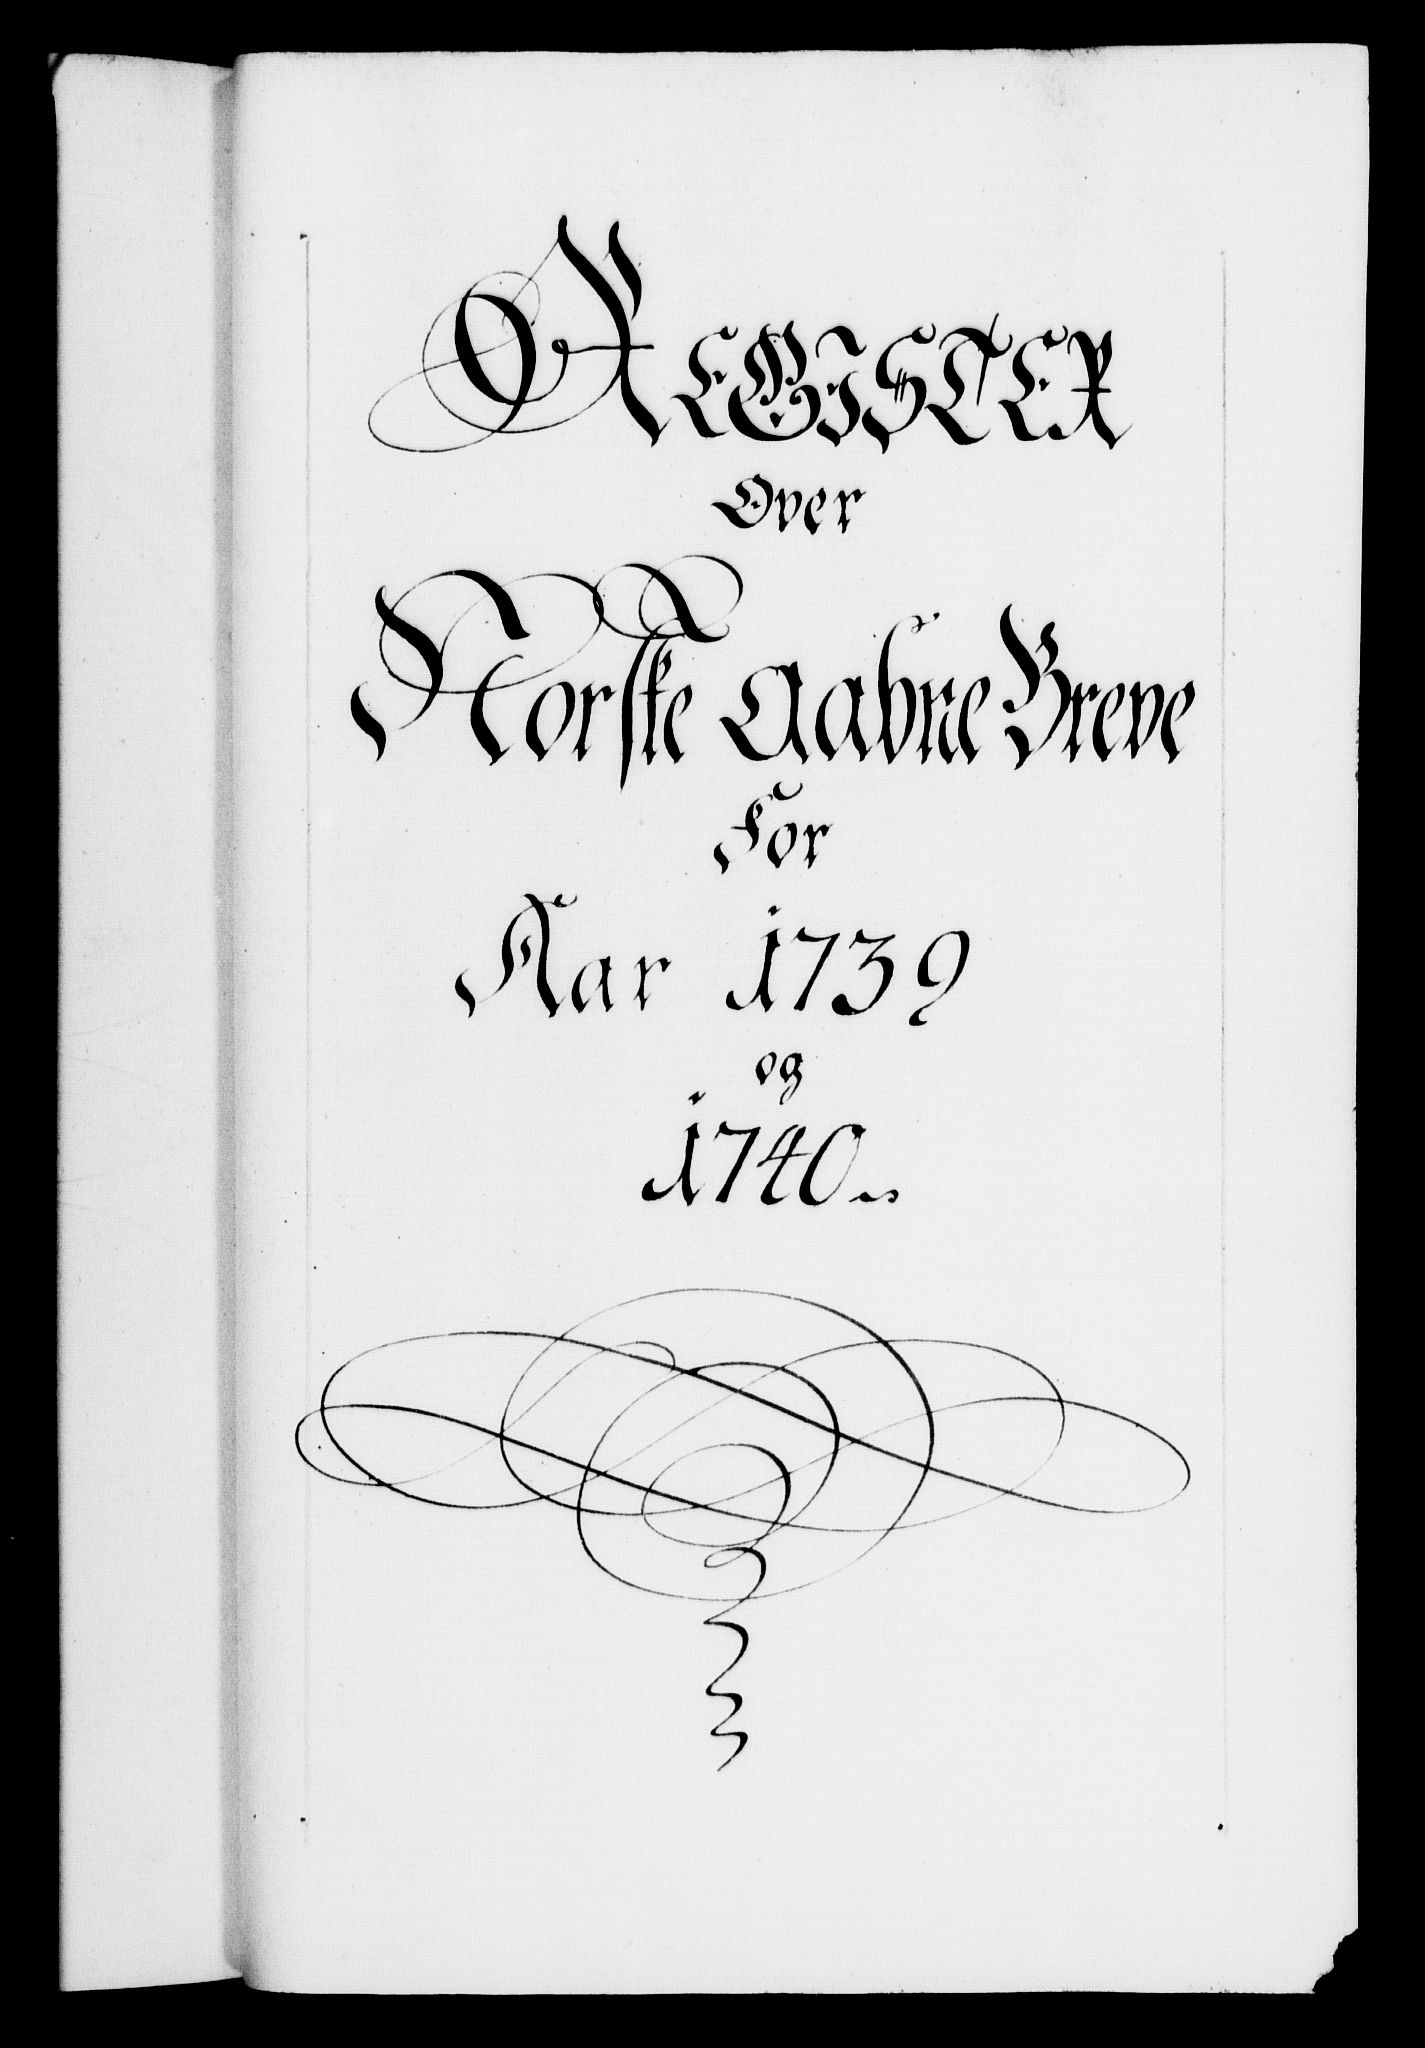 REGISTER
Over
Norske Aabne Breve
For
Aar 1739
og
1740..